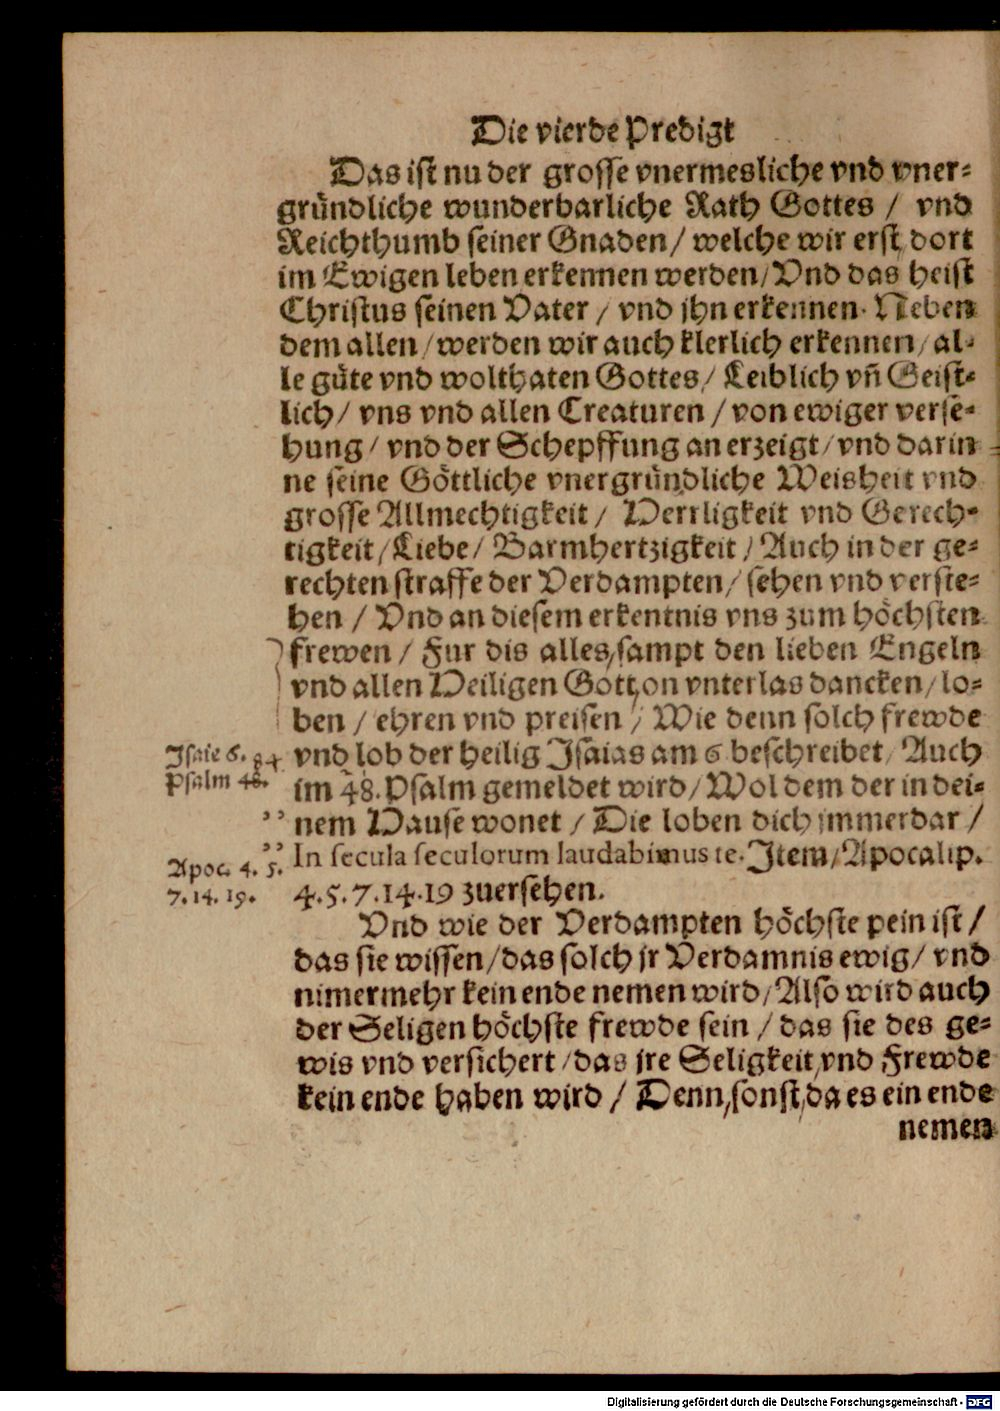 Die vierde Predigt
Das ist nu der grosse vnermesliche vnd vner-
gründliche wunderbarliche Rath Gottes / vnd
Reichthumb seiner Gnaden / welche wir erst dort
im Ewigen leben erkennen werden / Vnd das heist
Christus seinen Vater / vnd jhn erkennen. Neben
dem allen / werden wir auch klerlich erkennen / al-
le güte vnd wolthaten Gottes / Leiblich vñ Geist-
lich / vns vnd allen Creaturen / von ewiger verse-
hung / vnd der Schepffung an erzeigt / vnd darin-
ne seine Göttliche vnergründliche Weisheit vnd
grosse Allmechtigkeit / Herrligkeit vnd Gerech-
tigkeit / Liebe / Barmhertzigkeit / Auch in der ge-
rechten straffe der Verdampten / sehen vnd verste-
hen / Vnd an diesem erkentnis vns zum höchsten
frewen / Fur dis alles / sampt den lieben Engeln
vnd allen Heiligen Gott, on vnterlas dancken / lo-
ben / ehren vnd preisen / Wie denn solch frewde
Isaie 6.
vnd lob der heilig Isaias am 6 beschreibet / Auch
84
Psalm 48.
im 48. Psalm gemeldet wird / Wol dem der in dei-
nem Hause wonet / Die loben dich jmmerdar /
In secula seculorum laudabimus te. Item / Apocalip.
Apoc. 4. 5.
7. 14. 19.
4. 5. 7. 14. 19 zuersehen.
Vnd wie der Verdampten höchste pein ist /
das sie wissen / das solch jr Verdamnis ewig / vnd
nimermehr kein ende nemen wird / Also wird auch
der Seligen höchste frewde sein / das sie des ge-
wis vnd versichert / das jre Seligkeit, vnd Frewde
kein ende haben wird / Denn, sonst, da es ein ende
nemen
Digitalisierung gefördert durch die Deutsche Forschungsgemeinschaft - DFG